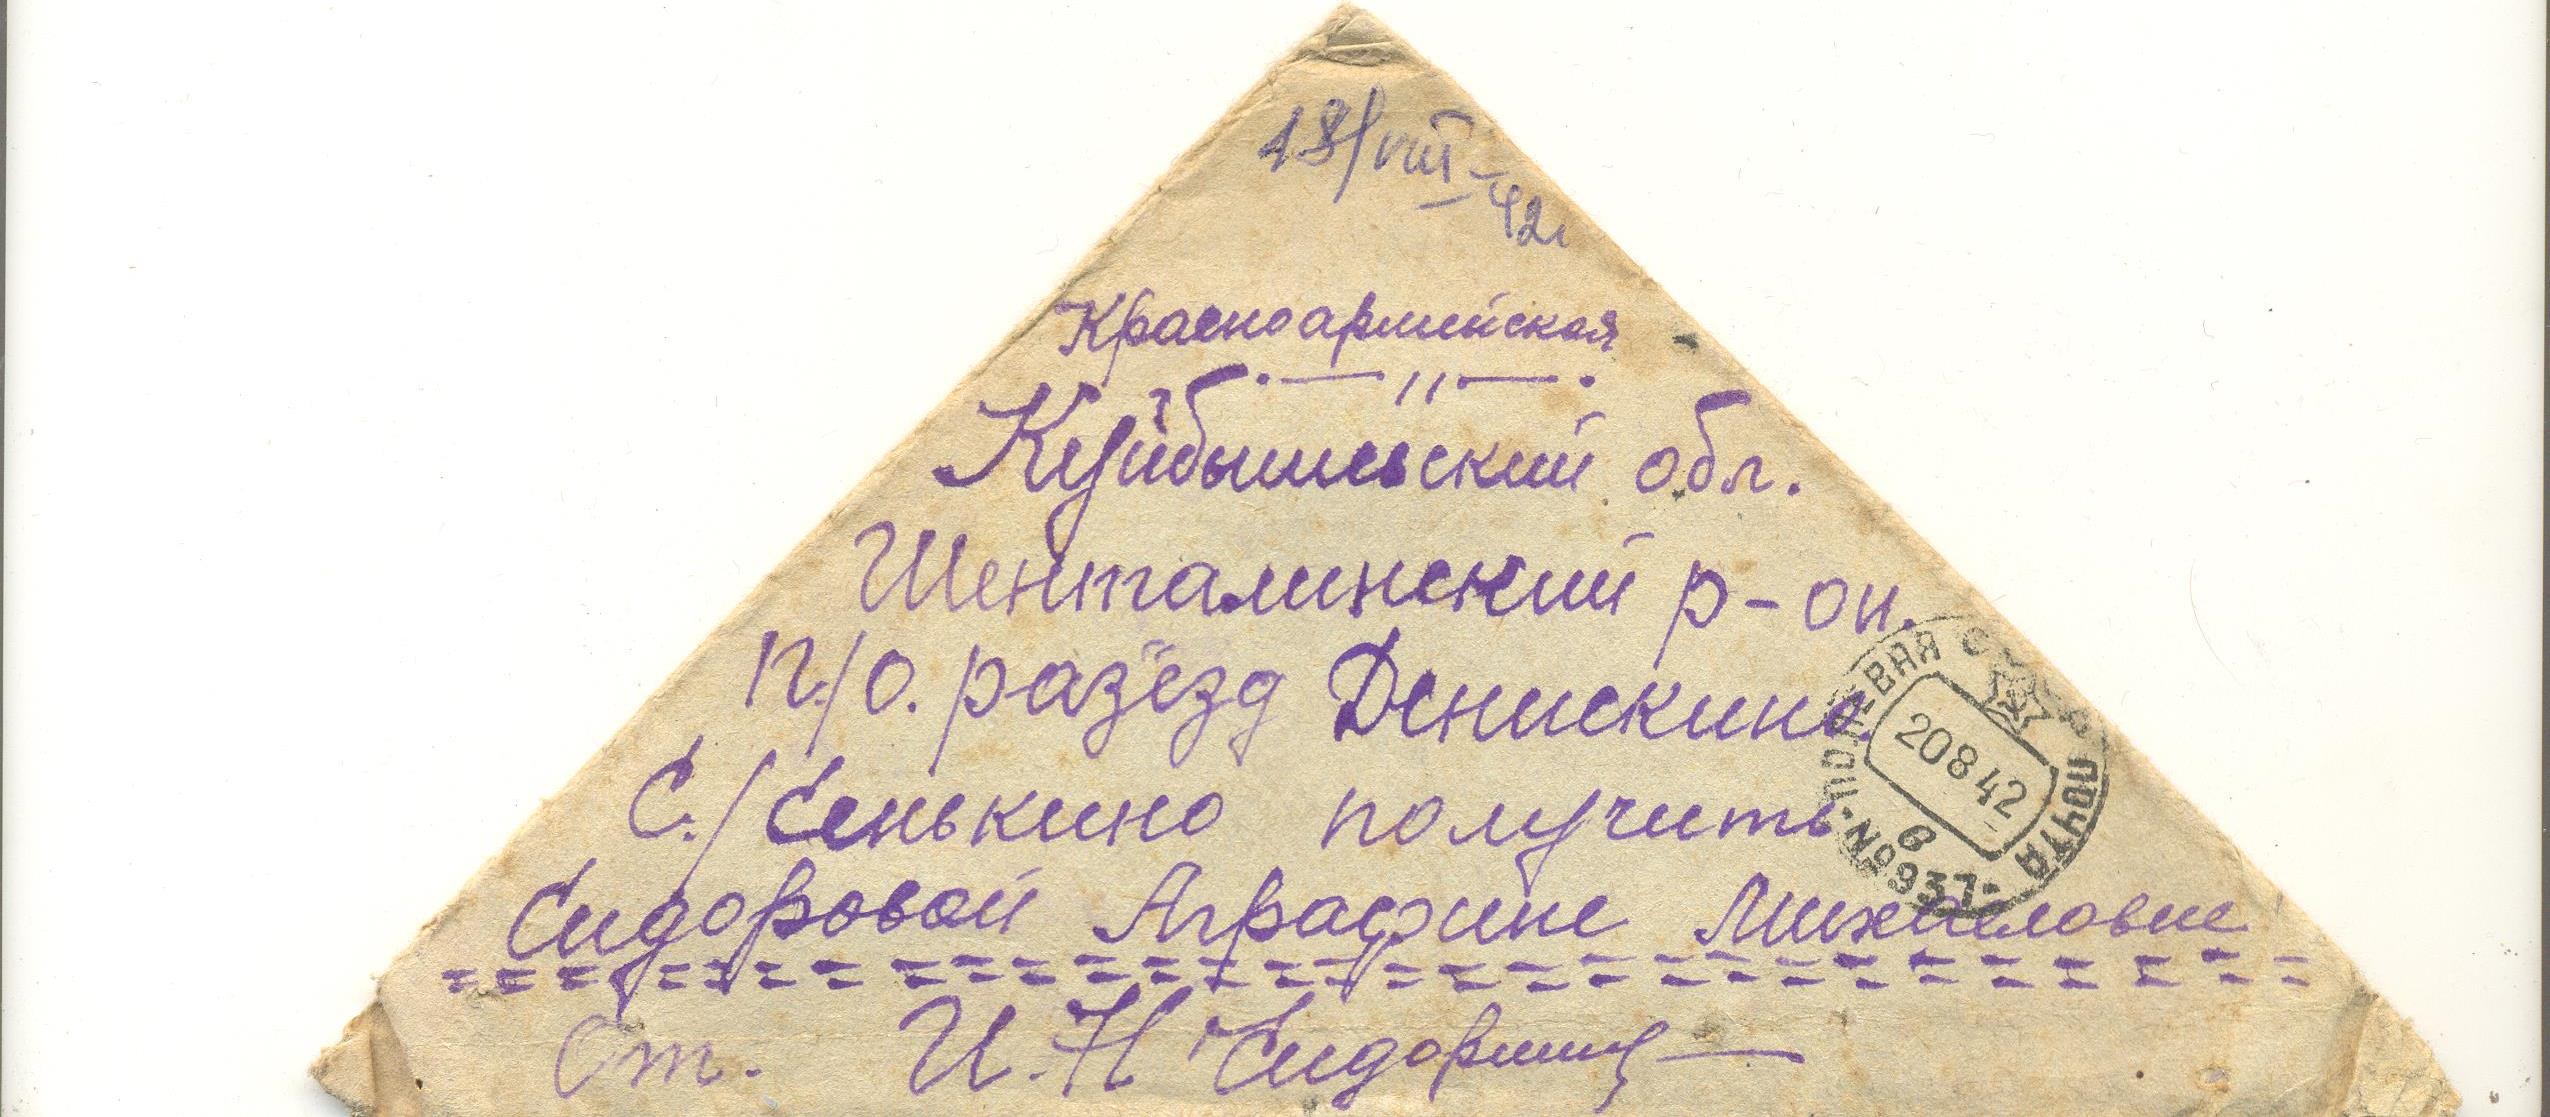 18/VIII-42г
Красноармейская
Куйбышевский обл.
Шенталинский р-он.
П./О. разъезд Денискино
С./Сенькино получить
Сидоровой Аграфине Михаиловне
От. И.Н
ПОЛЕВАЯ ПОЧТА
20 8 42
в
№ 937